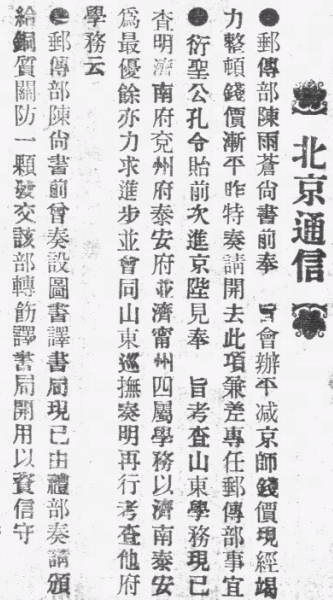 北京通信
●郵傳部陳雨蒼尙書前奉　旨會辦平减京師錢價現經竭
力整頓錢價漸平昨特奏請開去此項兼差專任郵傳部事宜
●衍聖公孔令貽前次進京陛見奉　旨考查山東學務現已
查明濟南府兗州府泰安府並濟甯州四屬學務以濟南泰安
爲最優餘亦力求進步並曾同山東巡撫奏明再行考查他府
學務云
●郵傳部陳尙書前曾奏設圖書譯書局現已由禮部奏請頒
給銅質關防一顆發交該部轉飭譯書局開用以資信守